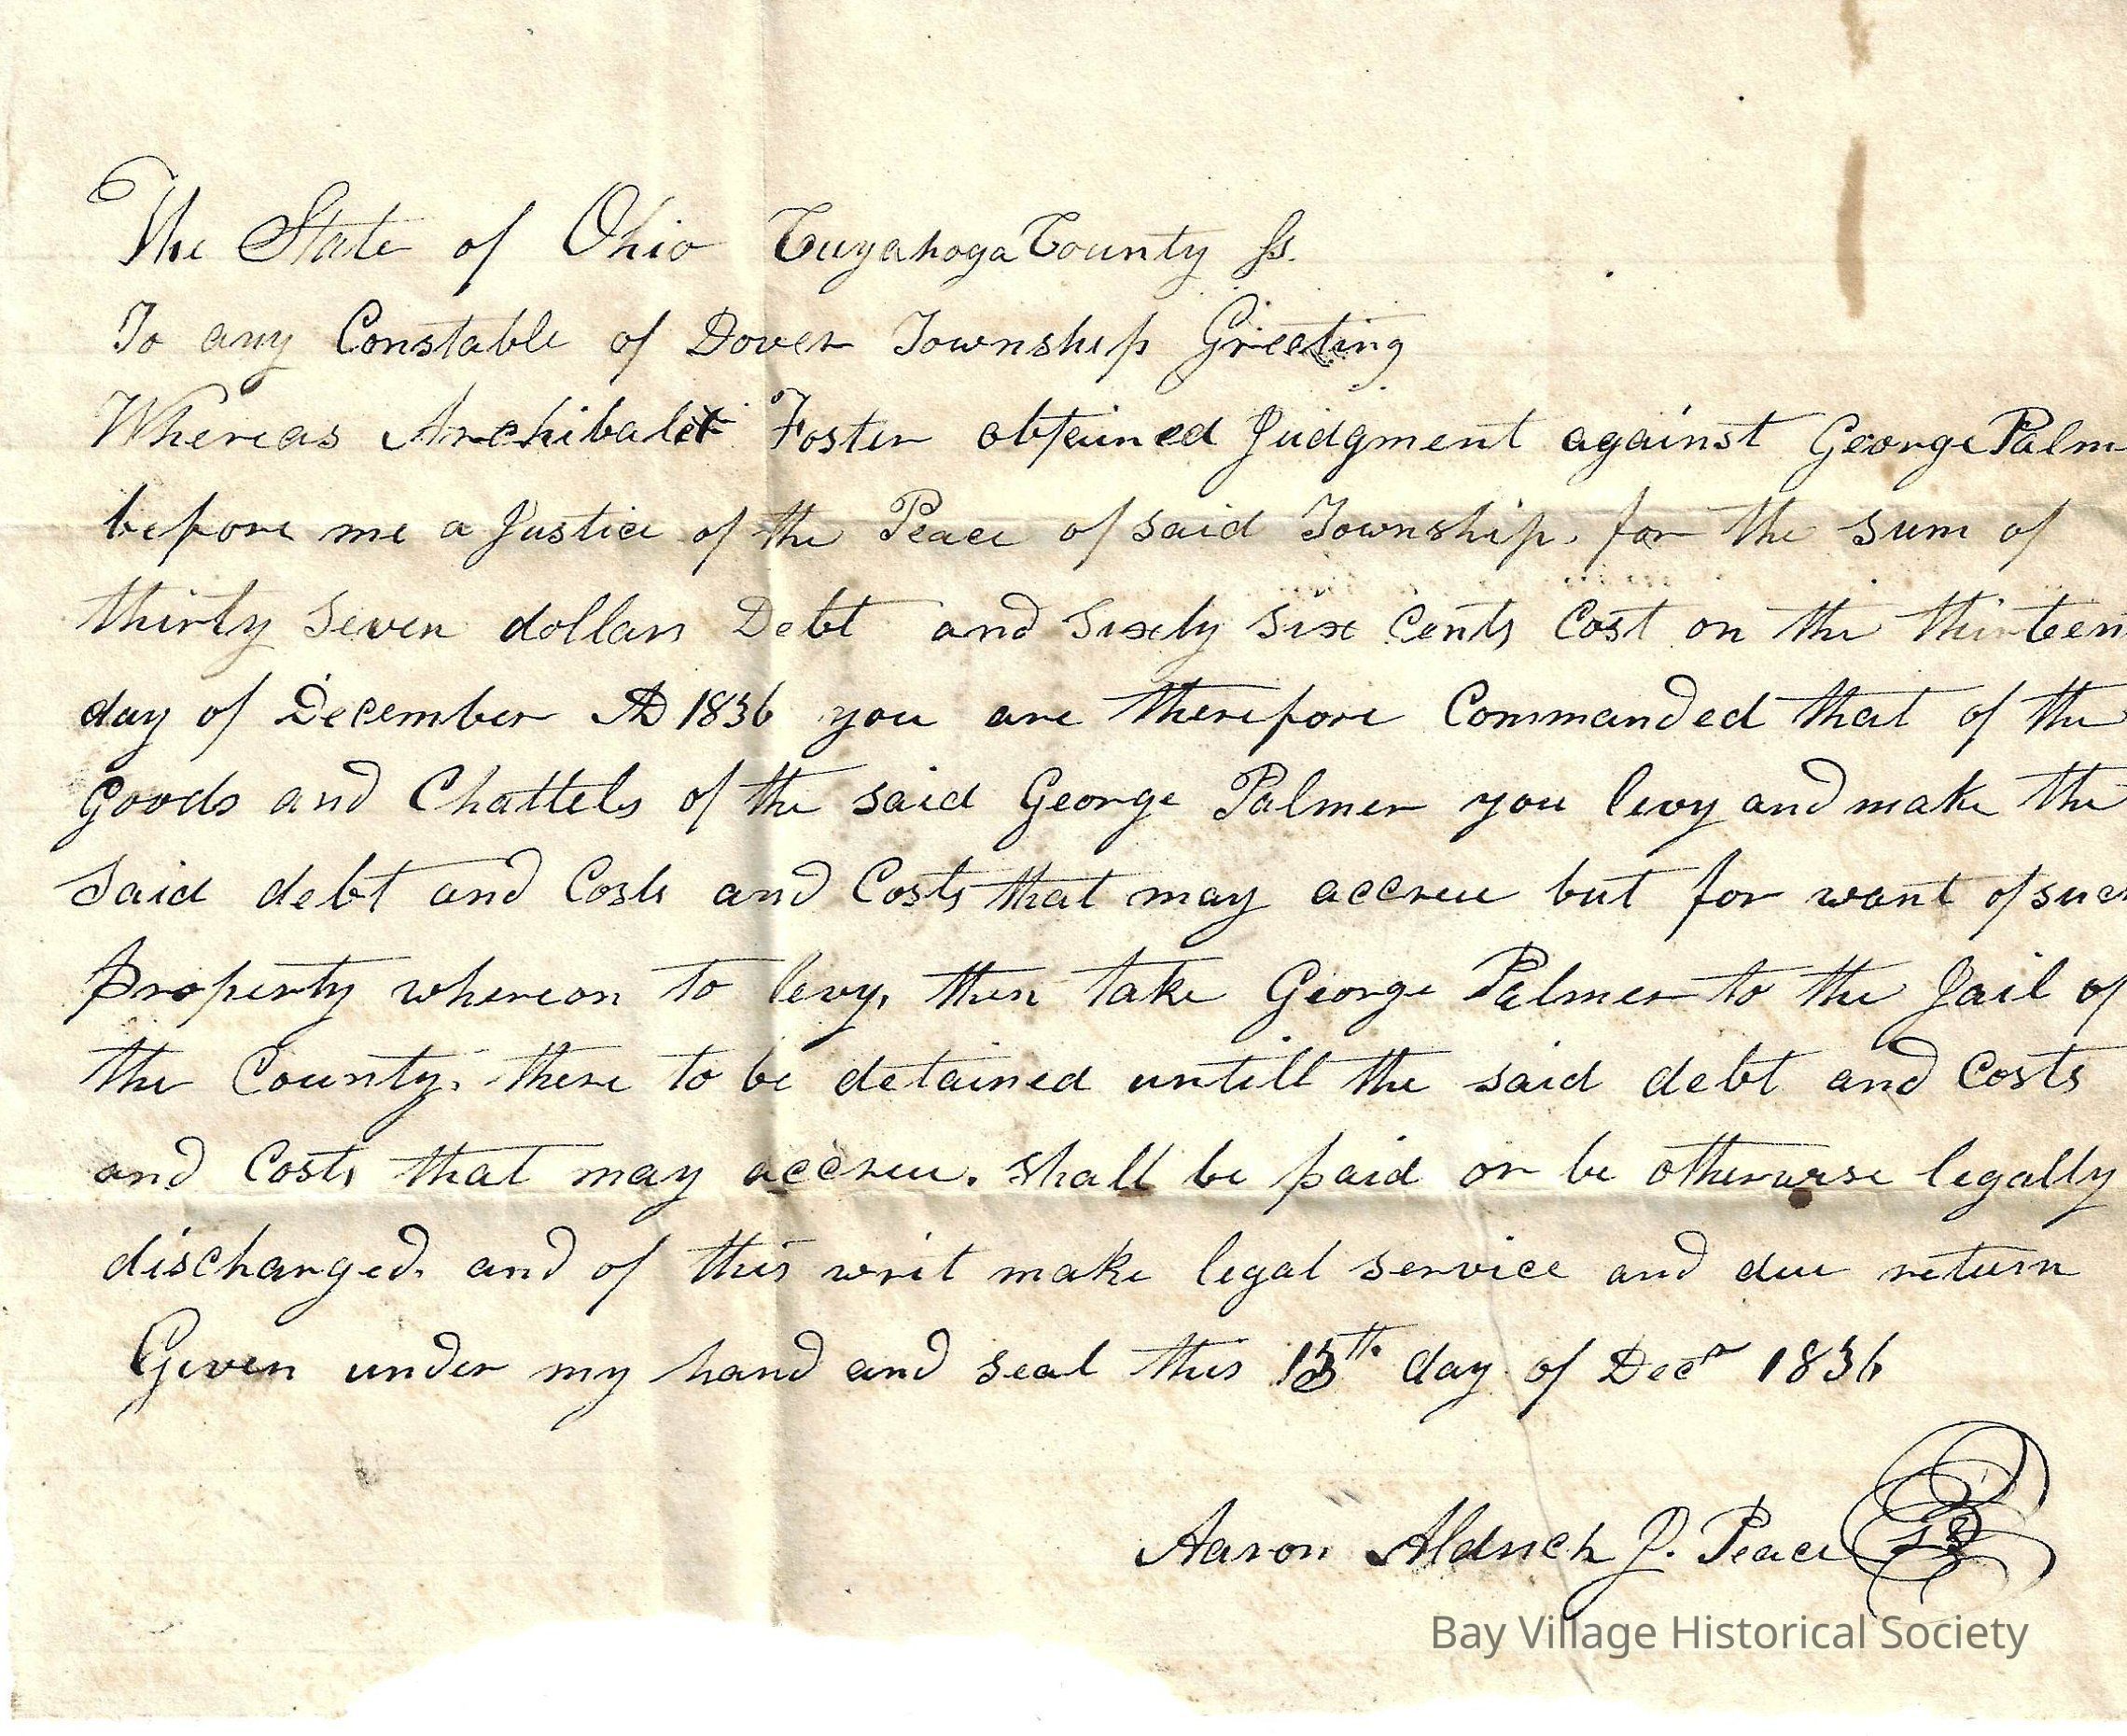 The State of Ohio Cuyahoga County Ss.
To any Constable of Dover Township Greeting
Whereas Archibald Foster obtained Judgment against George Palm
before me a Justice of the Peace of said Township. for the sum of
thirty seven dollars Debt and Sixty Six Cents Cost on the thirteen
day of December AD 1836 you are therefore Commanded that of the
goods and Chattels of the said George Palmer you levy and make the
said debt and Costs and Costs that may accrue but for want of such
Property whereon to levy, then take George Palmer to the Jail of
the County. there to be detained untill the said debt and Costs
and Costs that may accrue. shall be paid or be otherwise legally
discharged. and of this writ make legal service and due return
Given under my hand and seal this 13th day of Decr 1836
Aaron Aldrich J. Peace LS
Bay Village Historical Society